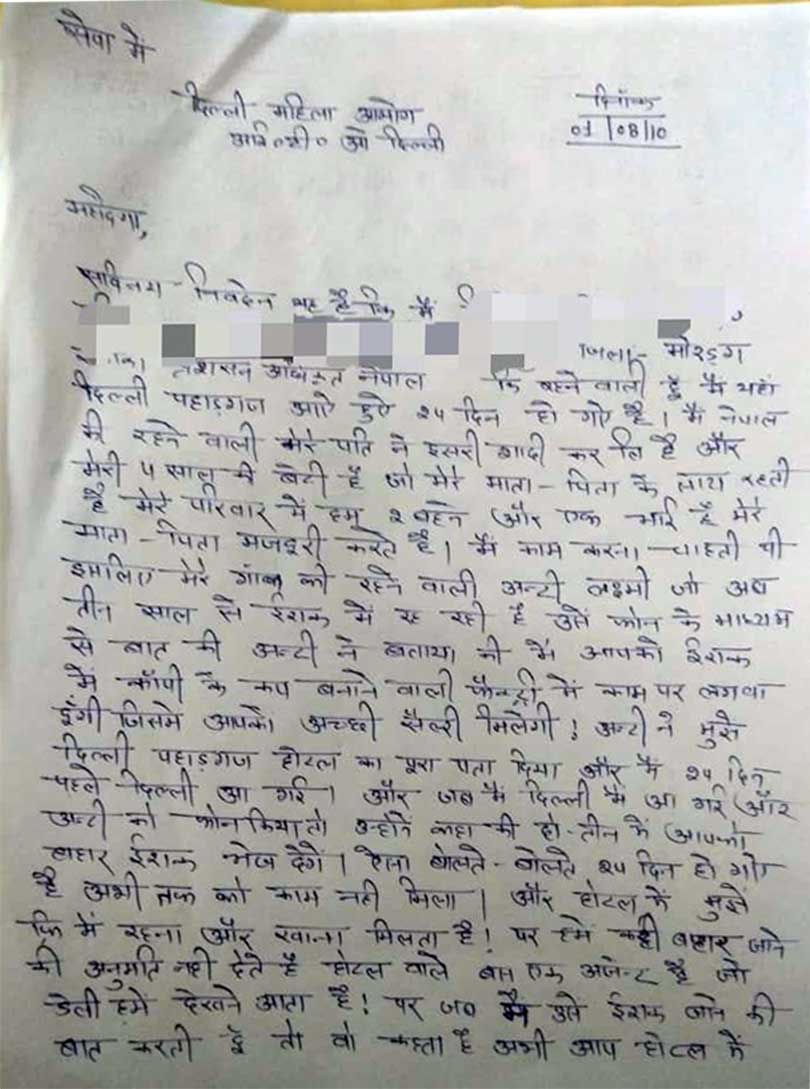 सेवा में
दिल्ली महिला आयोग
आई०पी० ओ दिल्ली
दिनाँक
01/08/10
महोदया,
सविनय - निवेदन यह है कि मैं
जिला - मोरङग
नेपाल कि रहने वाली हूँ मैं यहाँ
दिल्ली पहाड़गज आऐ हुऐ 24 दिन हो गऐ है। मैं नेपाल
की रहने वाली मेरे पति ने दुसरी शादी कर लि है और
मेरी 4 साल की बेटी है जो मेरे माता - पिता के साथ रहती
है मेरे परिवार में हम 2 बहने और एक भाई है मेरे
माता - पिता मजदूरी करते है। मैं काम करना चाहती थी
इसलिए मेरे गांव की रहने वाली अन्टी लक्ष्मी जो अब
तीन साल से ईराक में रह रही है उसे फोन के माध्यम
से बात की अन्टी ने बताया की मैं आपको ईराक
में कॉपी के कप बनाने वाली फैक्ट्री में काम पर लगवा
दूँगी जिसमे आपको अच्छी सैलरी मिलेगी! अन्टी ने मुझे
दिल्ली पहाड़गज होटल का पूरा पता दिया और मैं 24 दिन
पहले दिल्ली आ गई। और जब मैं दिल्ली में आ गई और
अन्टी को फोन किया तो उन्होंने कहा की दो-तीन में आपको
बाहर ईराक भेज देगें। ऐसा बोलते-बोलते 24 दिन हो गऐ
है अभी तक को काम नही मिला। और होटल में मुझे
फ्रि में रहना और खाना मिलता है! पर हमे कही बाहर जाने
की अनुमति नही देते है होटल वाले बस एक अजेन्ट है जो
डेली हमे देखने आता है! पर जब मैं उसे ईराक जाने की
बात करती हूँ तो वो कहता है अभी आप होटल में